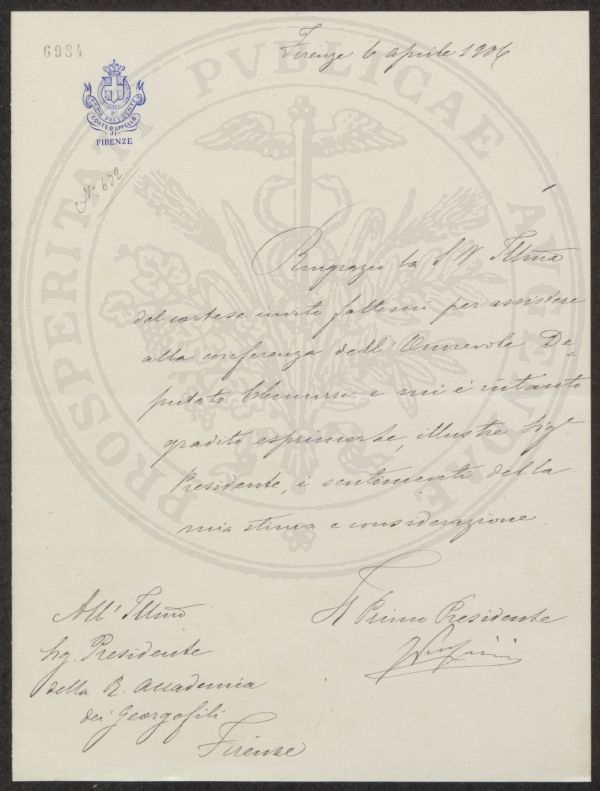 6984
Firenze 6 aprile 1906
PRIMO PRESIDENTE
CORTE D'APPELLO
DI
FIRENZE
N. 632
PROSPERITATI PVBLICAE AVGENDAE
Ringrazio la S. V. Illma
del cortese invito fattomi per assistere
alla conferenza dell'Onorevole De-
putato Chimirri e mi è intanto
gradito esprimerle, illustre Sigr
Presidente, i sentimenti della
mia stima e considerazione.
Il Primo Presidente
All' Illmo
Sig. Presidente
della R. Accademia
dei Georgofili
Firenze